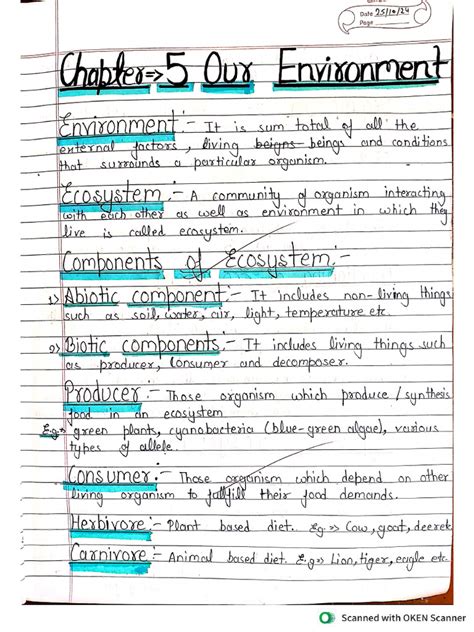 Date 25/10/24
Page
Chapter => 5 Our Environment
Environment :- It is sum total of all the
external factors, living beigns- beings and conditions
that surrounds a particular organism.
Ecosystem :- A community of organism interacting
with each other as well as environment in which they
live is called ecosystem.
Components of Ecosystem :-
1) Abiotic component :- It includes non-living things
such as soil, water, air, light, temperature etc.
2) Biotic components :- It includes living things such
as producer, Consumer and decomposer.
Producer :- Those organism which produce / synthesis
food in an ecosystem
E.g => green plants, cyanobacteria (blue-green algae), various
types of allele.
Consumer :- Those organism which depend on other
living organism to fullfill their food demands.
Herbivore :- Plant based diet. E.g => Cow, goat, deer etc
Carnivore :- Animal based diet. E.g => Lion, tiger, eagle etc.
Scanned with OKEN Scanner